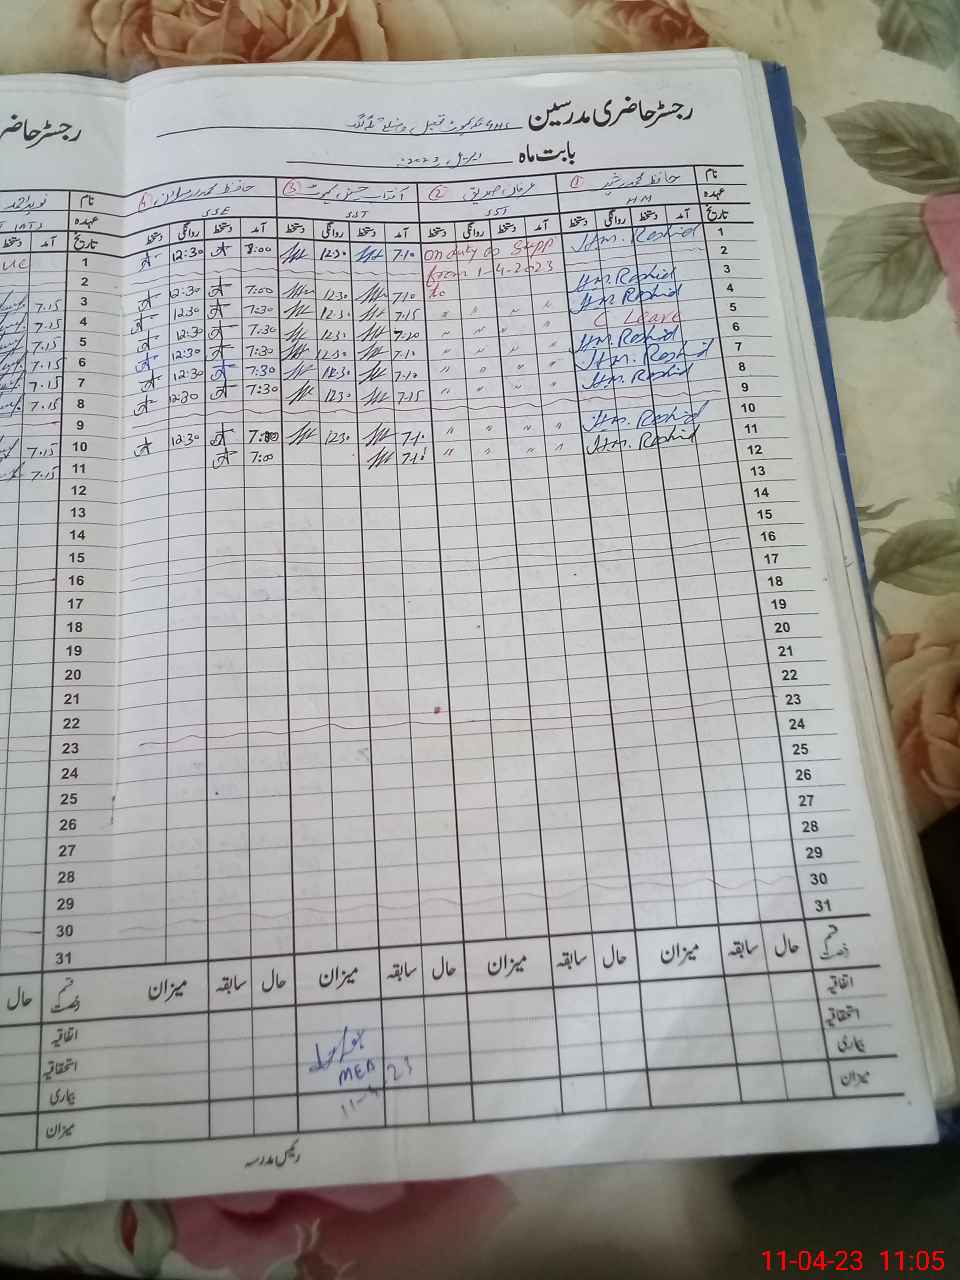 رجسٹر حاضری مدرسین
بابت ماہ اپریل 2023
نام حافظ محمد رشید ① عرفان صدیق ② ③ حافظ محمد
عہدہ HM SST SST SSE
تاریخ آمد دستخط روانگی دستخط آمد دستخط روانگی دستخط آمد دستخط روانگی دستخط آمد دستخط روانگی دستخط
1 H.M. Rashid on duty as Supp 7.10 12:30 8:00 12:30
2 from 1-4-2023
3 H.M. Rashid to 7.10 12:30 7:00 12:30
4 H.M. Rashid " " " " 7.15 12:30 7:30 12:30
5 C Leave " " " " 7.20 12:30 7:30 12:30
6 H.M. Rashid " " " " 7.10 12:30 7:30 12:30
7 H.M. Rashid " " " " 7.10 12:30 7:30 12:30
8 H.M. Rashid " " " " 7.15 12:30 7:30 12:30
9
10 H.M. Rashid " " " " 7.10 12:30 12:30
11 H.M. Rashid " " " " 7.10 7:00
12
13
14
15
16
17
18
19
20
21
22
23
24
25
26
27
28
29
30
31
قسم رخصت حال سابقہ میزان حال سابقہ میزان حال سابقہ میزان حال سابقہ میزان
اتفاقیہ
استحقاقیہ
بیماری
میزان
MEA
11-4-23
رئیس مدرسہ
رجسٹر حاضر
نام
عہدہ
تاریخ آمد دستخط
1
2
3 7.15
4 7.15
5 7.15
6 7.15
7 7.15
8 7.15
9
10 7.15
11 7.15
12
13
14
15
16
17
18
19
20
21
22
23
24
25
26
27
28
29
30
31
قسم رخصت حال
اتفاقیہ
استحقاقیہ
بیماری
میزان
11-04-23 11:05